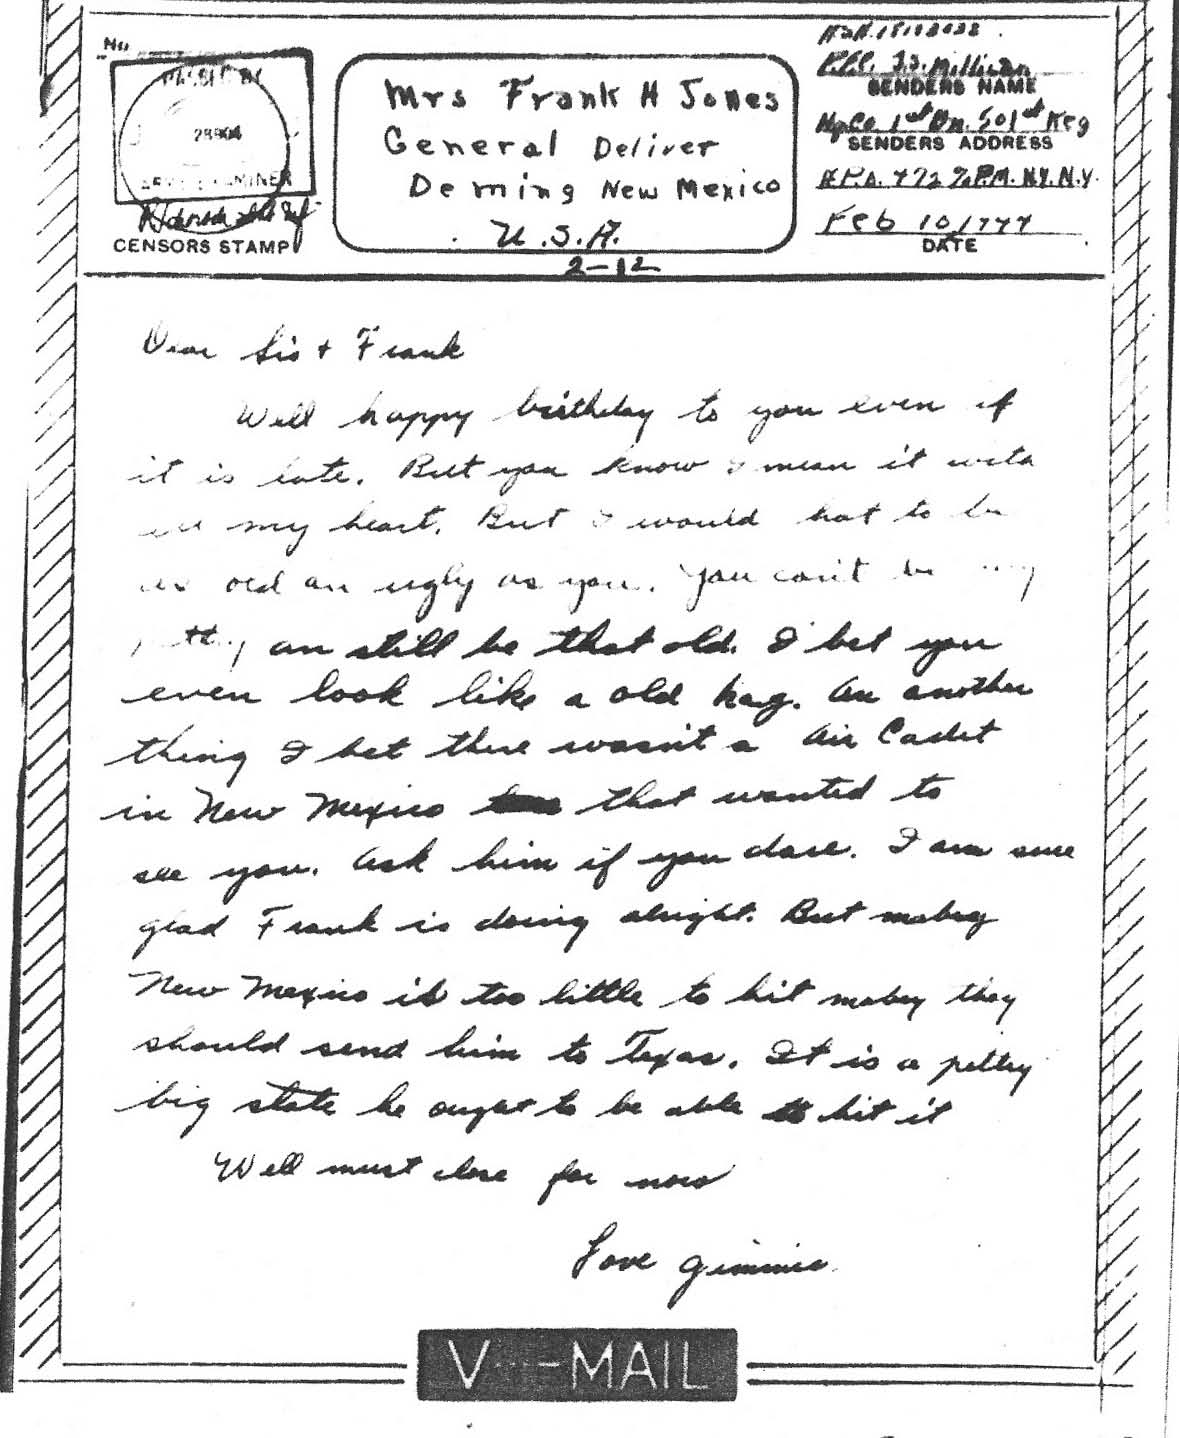 No
PASSED BY
28904
ARMY EXAMINER
CENSORS STAMP
Mrs Frank H Jones
General Deliver
Deming New Mexico
U.S.A.
2-12
SENDERS NAME
Hq Co 1st Bn. 501st
SENDERS ADDRESS
N.Y. N.Y.
Feb 10 1944
DATE
Dear Sis + Frank
Well happy birthday to you even if
it is late. But you know I mean it with
all my heart. But I would hat to be
as old an ugly as you. You can't be
an still be that old. I bet you
even look like a old hag. An another
thing I bet there wasn't a Air Cadet
in New Mexico that wanted to
see you. Ask him if you dare. I am sure
glad Frank is doing alright. But mabey
New Mexico is too little to hit mabey they
should send him to Texas. It is a pettey
big state he ought to be able to hit it
Well must close for now
Love Gimmie
V-MAIL